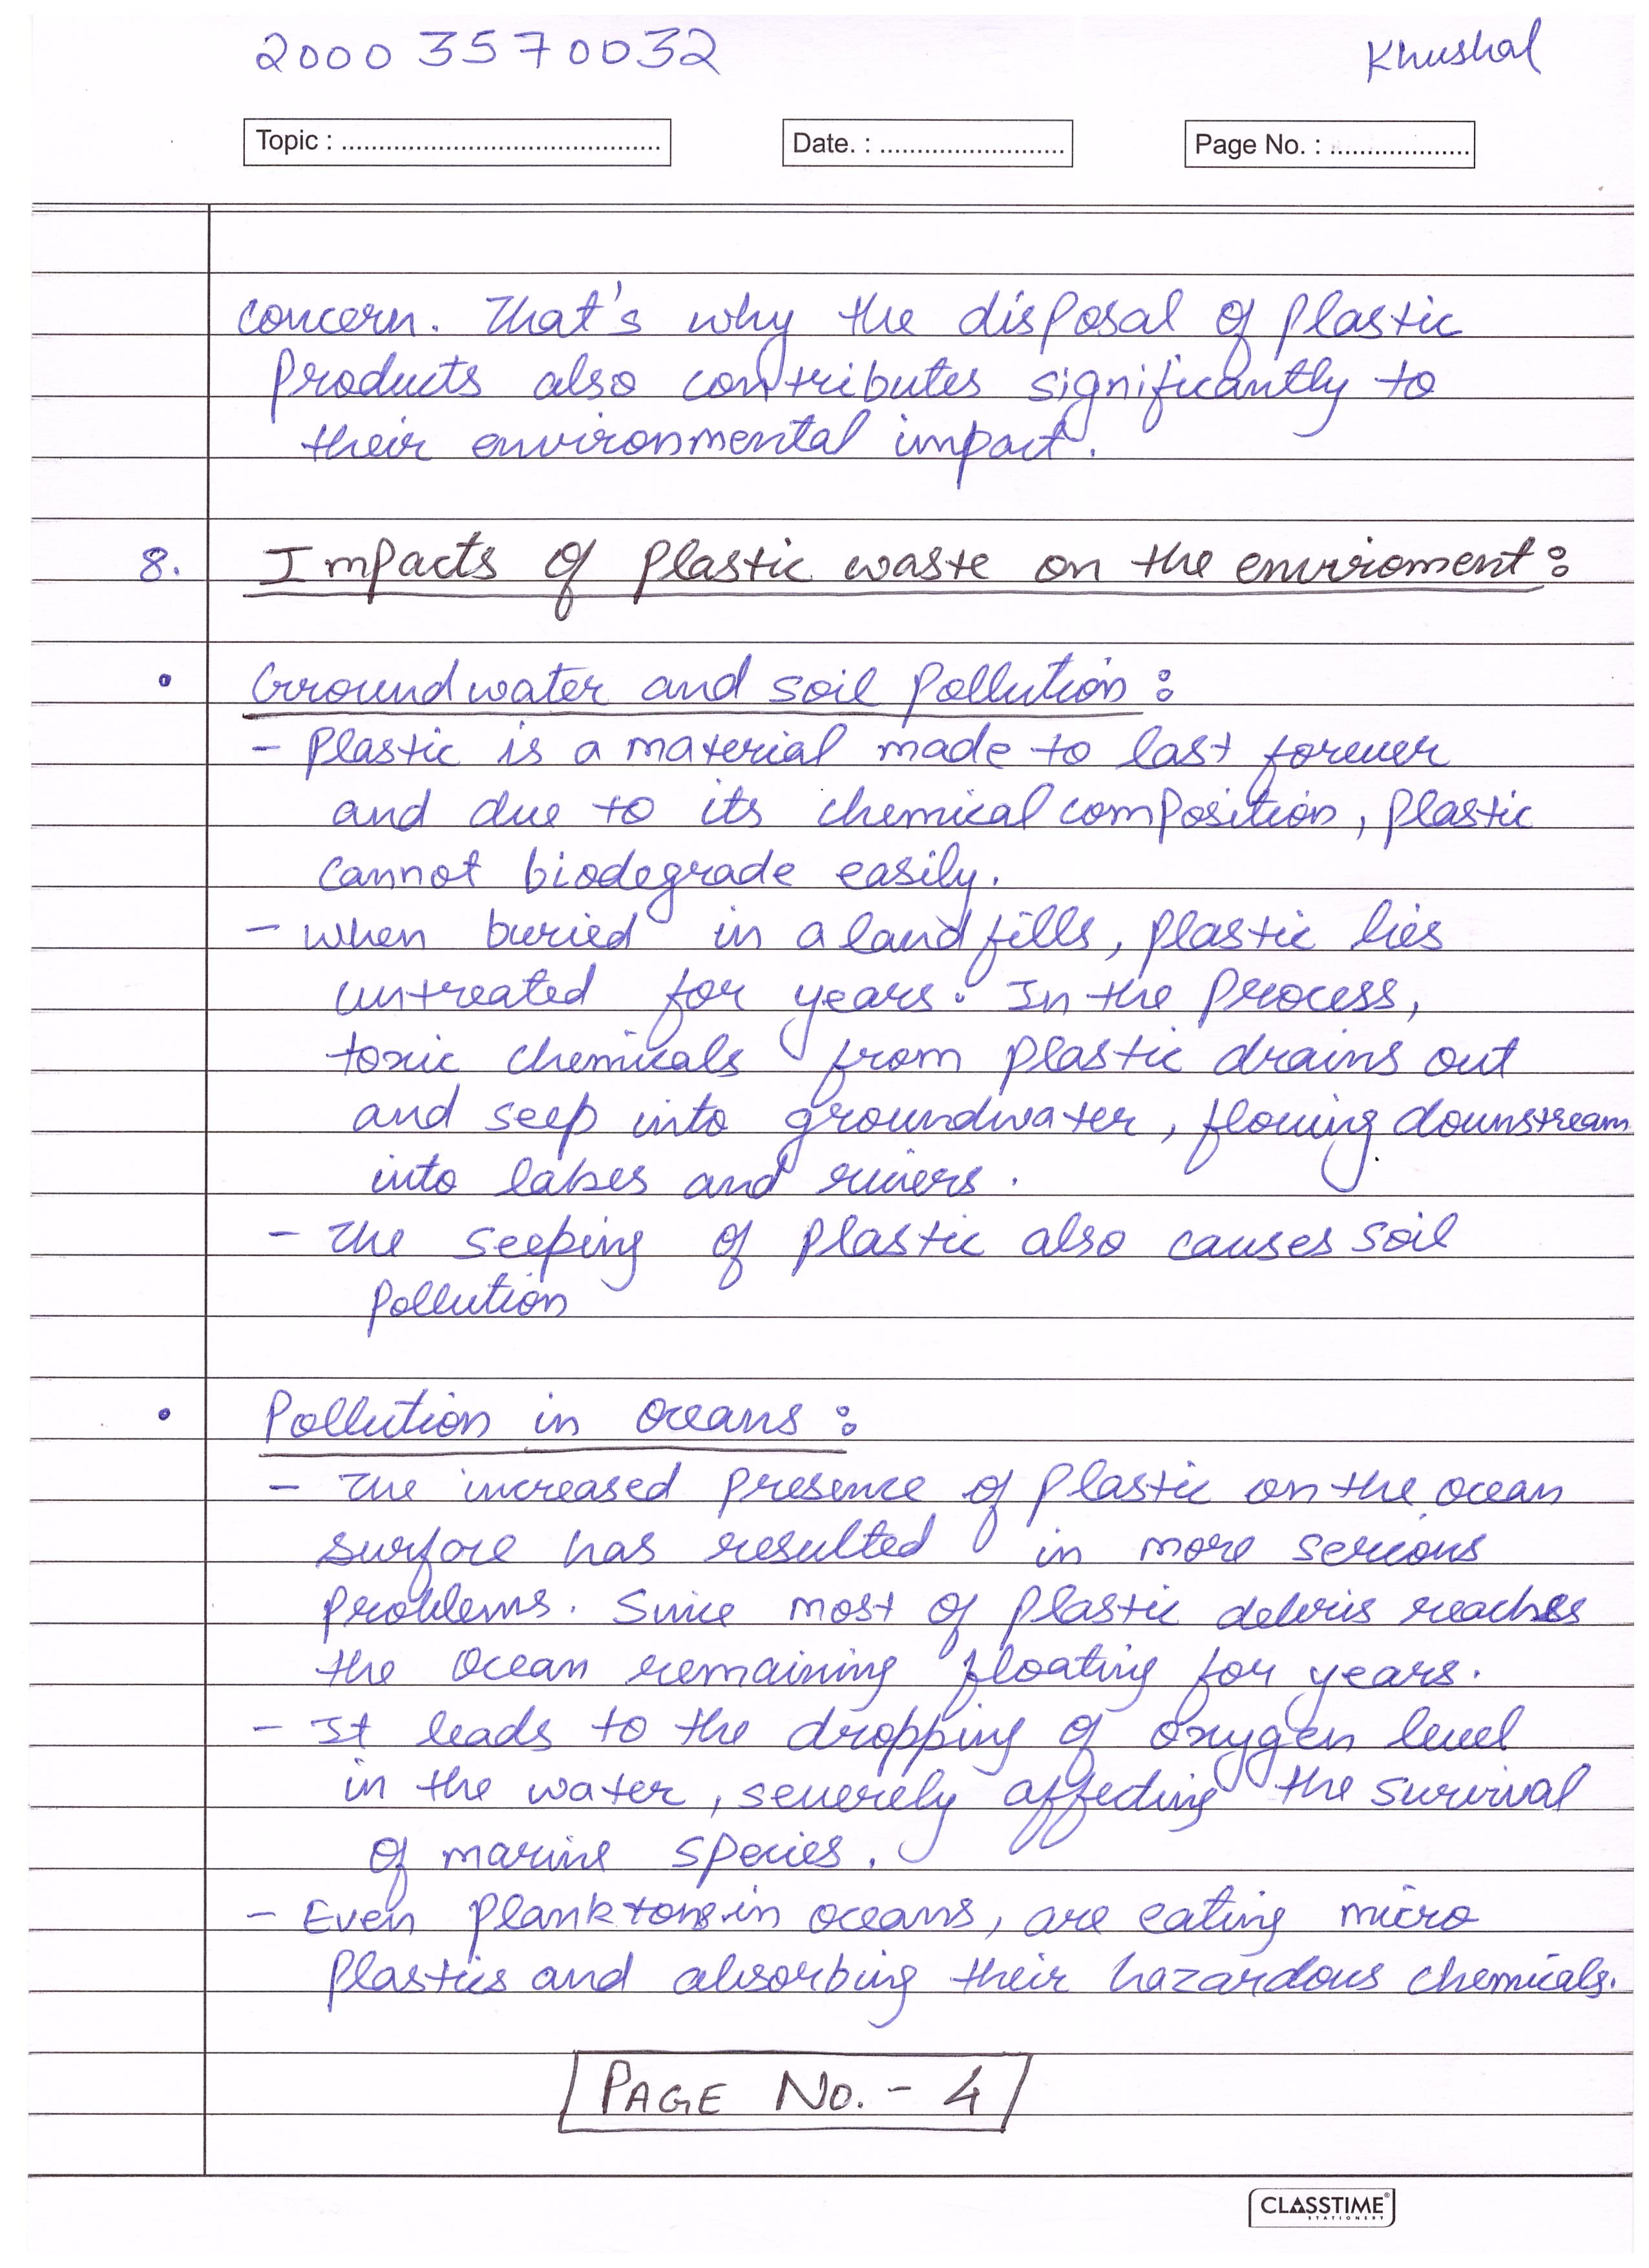 20003570032
Khushal
Topic : ...........................................
Date. : .........................
Page No. : ...................
concern. That's why the disposal of plastic
products also contributes significantly to
their environmental impact.
8. Impacts of plastic waste on the enviroment :
• Groundwater and soil pollution :
- Plastic is a material made to last forever
and due to its chemical composition, plastic
cannot biodegrade easily.
- When buried in a landfills, plastic lies
untreated for years. In the process,
toxic chemicals from plastic drains out
and seep into groundwater, flowing downstream
into lakes and rivers.
- The seeping of plastic also causes soil
pollution
• Pollution in oceans :
- The increased presence of plastic on the ocean
surface has resulted in more serious
problems. Since most of plastic debris reaches
the ocean remaining floating for years.
- It leads to the dropping of oxygen level
in the water, severely affecting the survival
of marine species.
- Even planktons in oceans, are eating micro
plastics and absorbing their hazardous chemicals.
PAGE No. - 4
CLASSTIME
STATIONERY